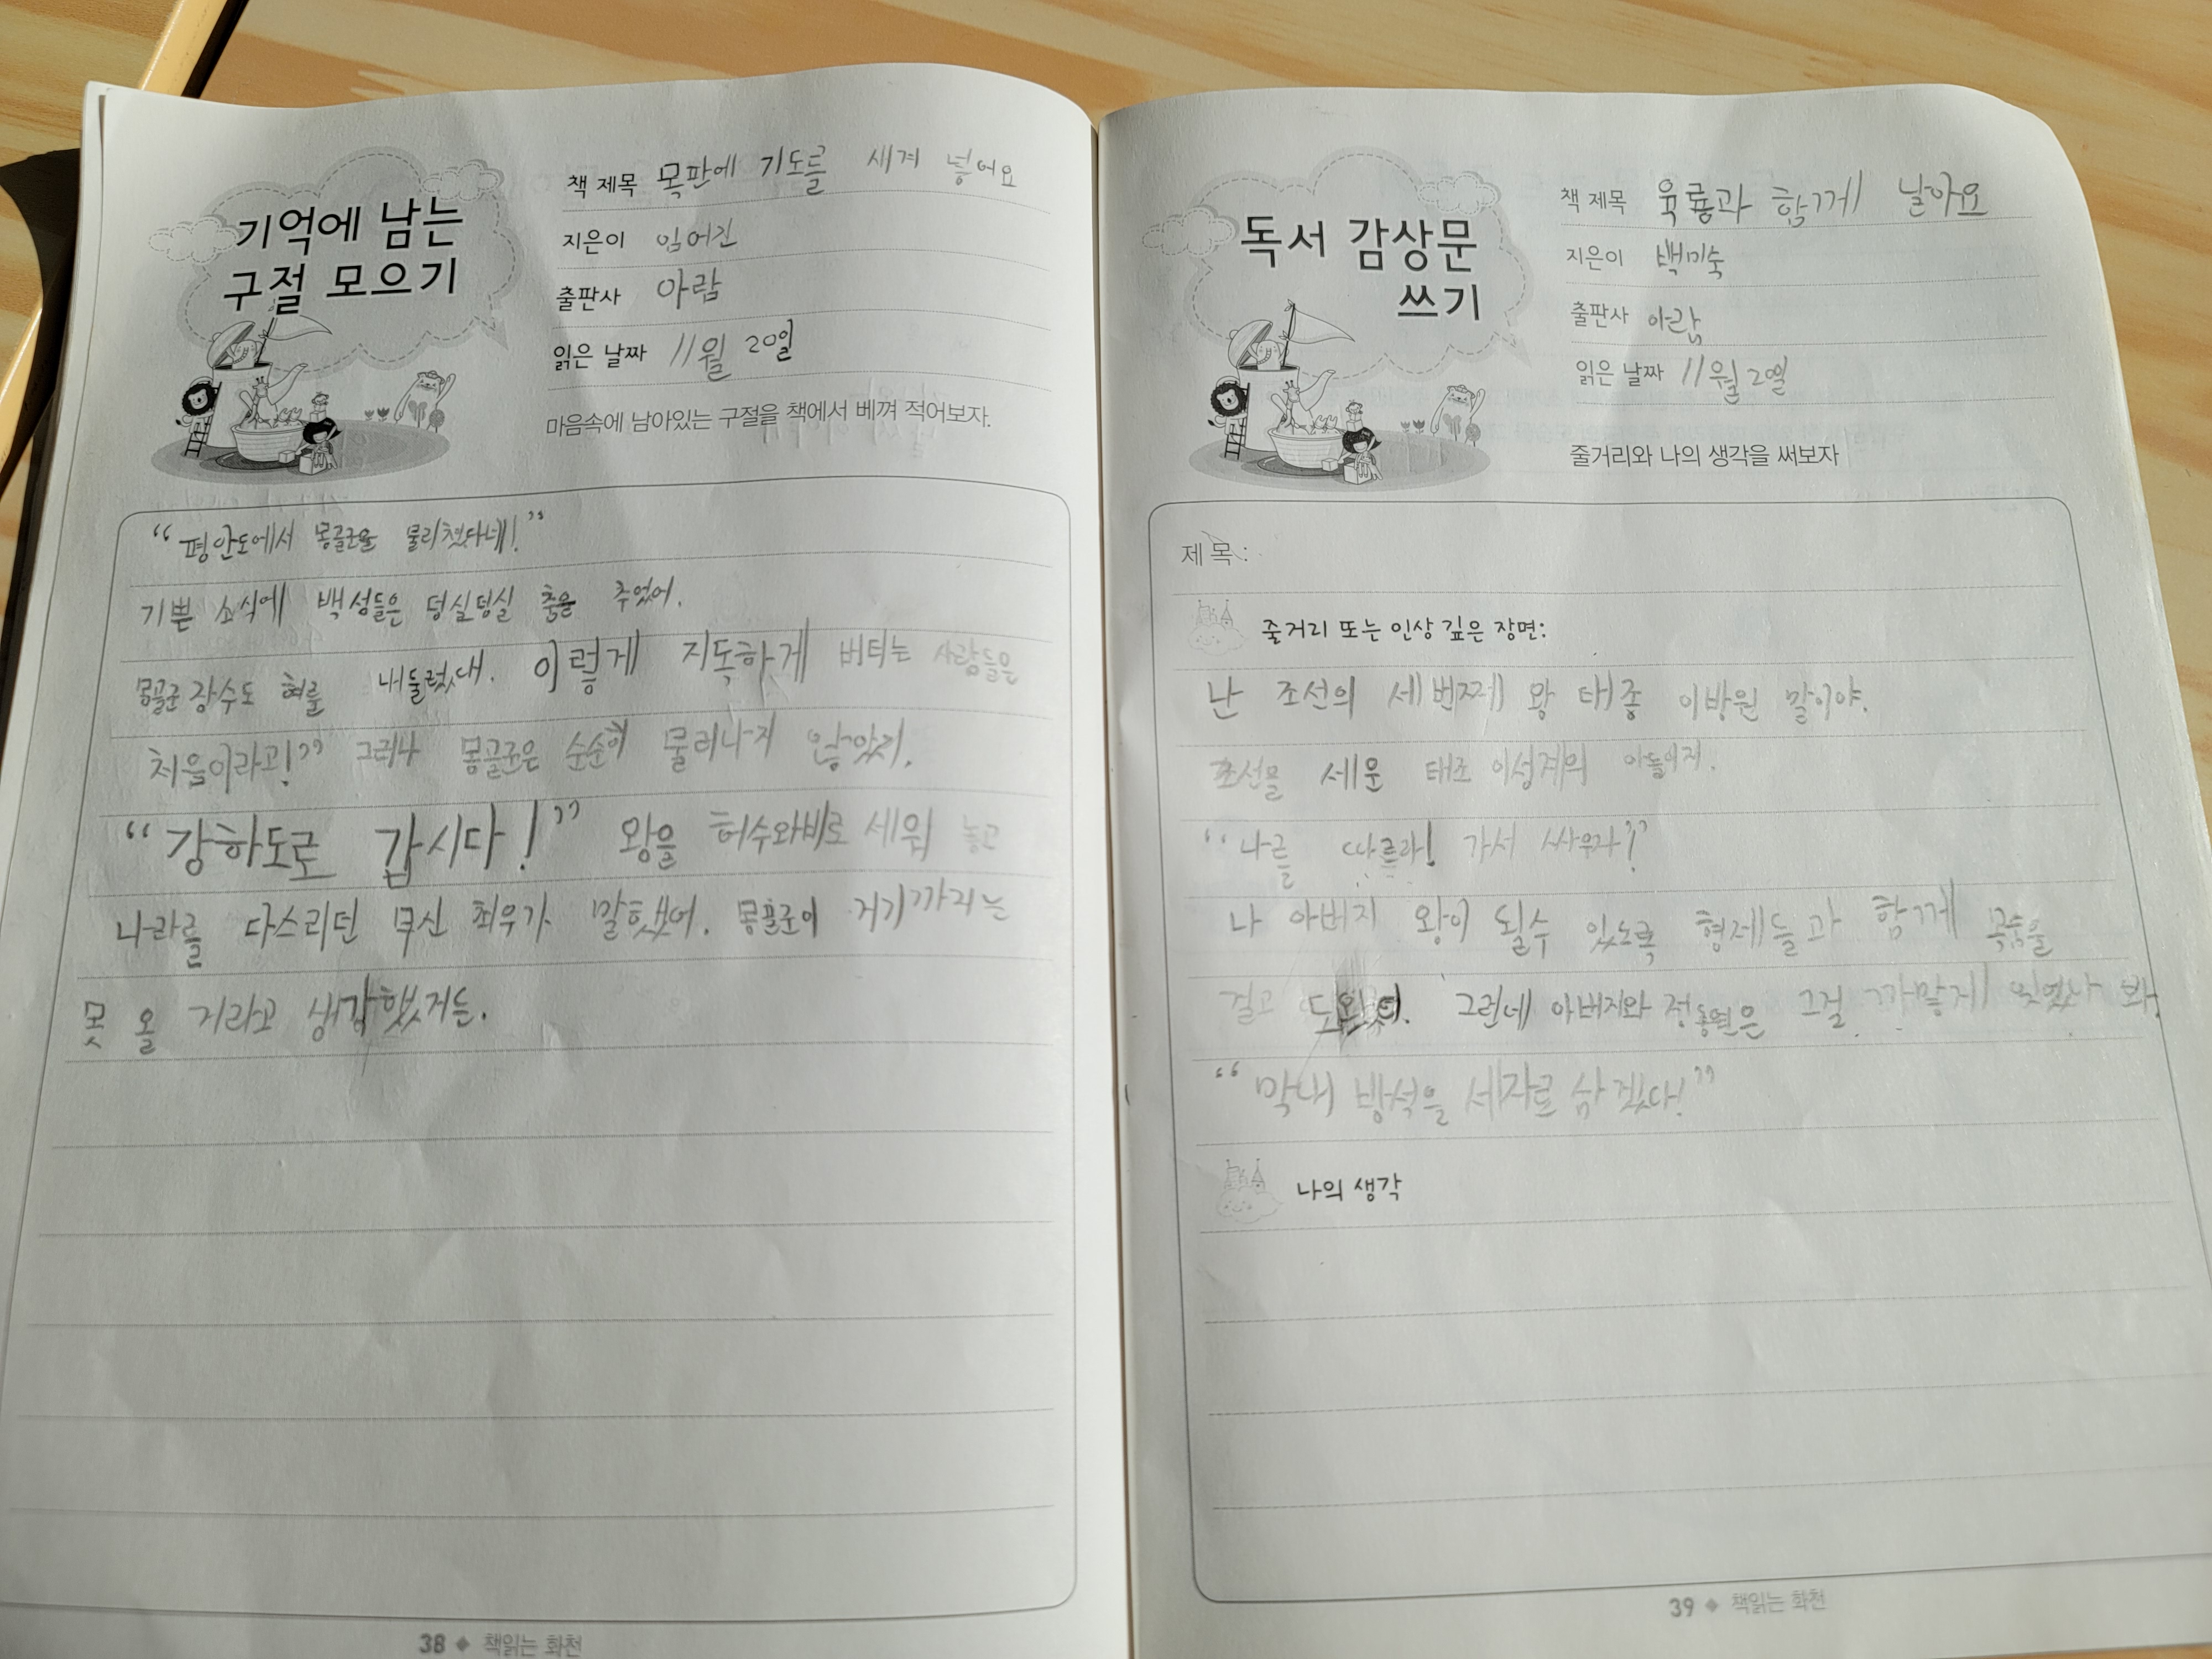 기억에 남는
구절 모으기
책 제목 목판에 기도를 새겨 넣어요
지은이 임어진
출판사 아람
읽은 날짜 11월 20일
마음속에 남아있는 구절을 책에서 베껴 적어보자.
“평안도에서 몽골군을 물리쳤다네!”
기쁜 소식에 백성들은 덩실덩실 춤을 추었어.
몽골군 장수도 혀를 내둘렀대. 이렇게 지독하게 버티는 사람들은
처음이라고!” 그러나 몽골군은 순순히 물러나지 않았지.
“강하도로 갑시다!” 왕을 허수와비로 세워 놓고
나라를 다스리던 무신 최우가 말했어. 몽골군이 거기까지는
못 올 거라고 생각했거든.
38 ◆ 책읽는 화천
독서 감상문
쓰기
책 제목 육룡과 함께 날아요
지은이 백미숙
출판사 아람
읽은 날짜 11월 20일
줄거리와 나의 생각을 써보자
제 목 :
줄거리 또는 인상 깊은 장면:
난 조선의 세번째 왕 태종 이방원 말이야.
조선을 세운 태조 이성계의 아들이지.
“나를 따르라! 가서 싸우자!”
나 아버지 왕이 될수 있도록 형제들과 함께 목숨을
걸고 도왔어. 그런데 아버지와 은 그걸 까맣게 봐.
“막내 방석을 세자로 삼겠다!”
나의 생각
39 ◆ 책읽는 화천